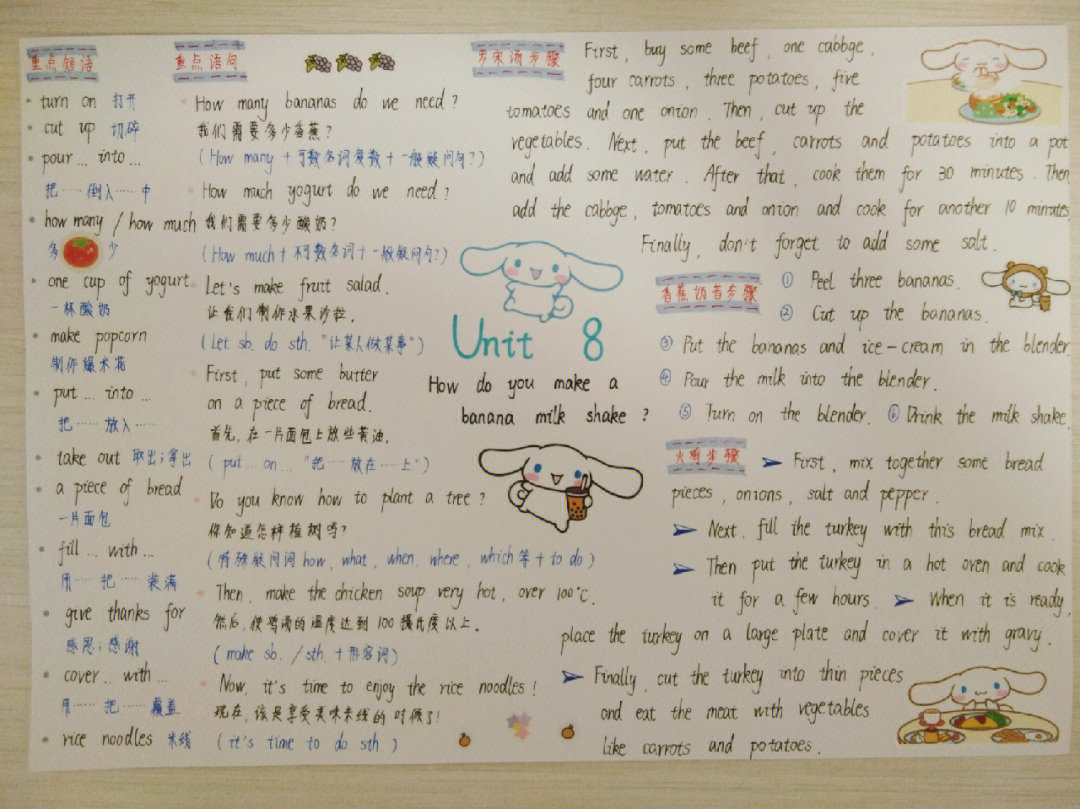 重点短语
turn on 打开
cut up 切碎
pour ... into ...
把 …… 倒入 …… 中
how many / how much
多 少
one cup of yogurt
一杯酸奶
make popcorn
制作爆米花
put ... into ...
把 …… 放入 ……
take out 取出；拿出
a piece of bread
一片面包
fill ... with ...
用 …… 把 …… 装满
give thanks for
感恩；感谢
cover ... with ...
用 …… 把 …… 覆盖
rice noodles 米线
重点语句
How many bananas do we need ?
我们需要多少香蕉？
( How many + 可数名词复数 + 一般疑问句？)
How much yogurt do we need ?
我们需要多少酸奶？
( How much + 不可数名词 + 一般疑问句？)
Let's make fruit salad.
让我们制作水果沙拉。
( Let sb. do sth. "让某人做某事" )
First, put some butter
on a piece of bread.
首先，在一片面包上放些黄油。
( put ... on ... "把 …… 放在 …… 上" )
Do you know how to plant a tree ?
你知道怎样植树吗？
( 特殊疑问词 how, what, when, where, which 等 + to do )
Then, make the chicken soup very hot, over 100°C.
然后，使鸡汤的温度达到 100 摄氏度以上。
( make sb. / sth. + 形容词 )
Now, it's time to enjoy the rice noodles !
现在，该是享受美味米线的时候了！
( it's time to do sth. )
Unit 8
How do you make a
banana milk shake ?
罗宋汤步骤
First, buy some beef, one cabbge,
four carrots, three potatoes, five
tomatoes and one onion. Then, cut up the
vegetables. Next, put the beef, carrots and potatoes into a pot
and add some water. After that, cook them for 30 minutes. Then
add the cabbge, tomatoes and onion and cook for another 10 minutes.
Finally, don't forget to add some salt.
香蕉奶昔步骤
① Peel three bananas.
② Cut up the bananas.
③ Put the bananas and ice-cream in the blender.
④ Pour the milk into the blender.
⑤ Turn on the blender. ⑥ Drink the milk shake.
火鸡步骤
➤ First, mix together some bread
pieces, onions, salt and pepper.
➤ Next, fill the turkey with this bread mix.
➤ Then put the turkey in a hot oven and cook
it for a few hours. ➤ When it is ready,
place the turkey on a large plate and cover it with gravy.
➤ Finally, cut the turkey into thin pieces
and eat the meat with vegetables
like carrots and potatoes.